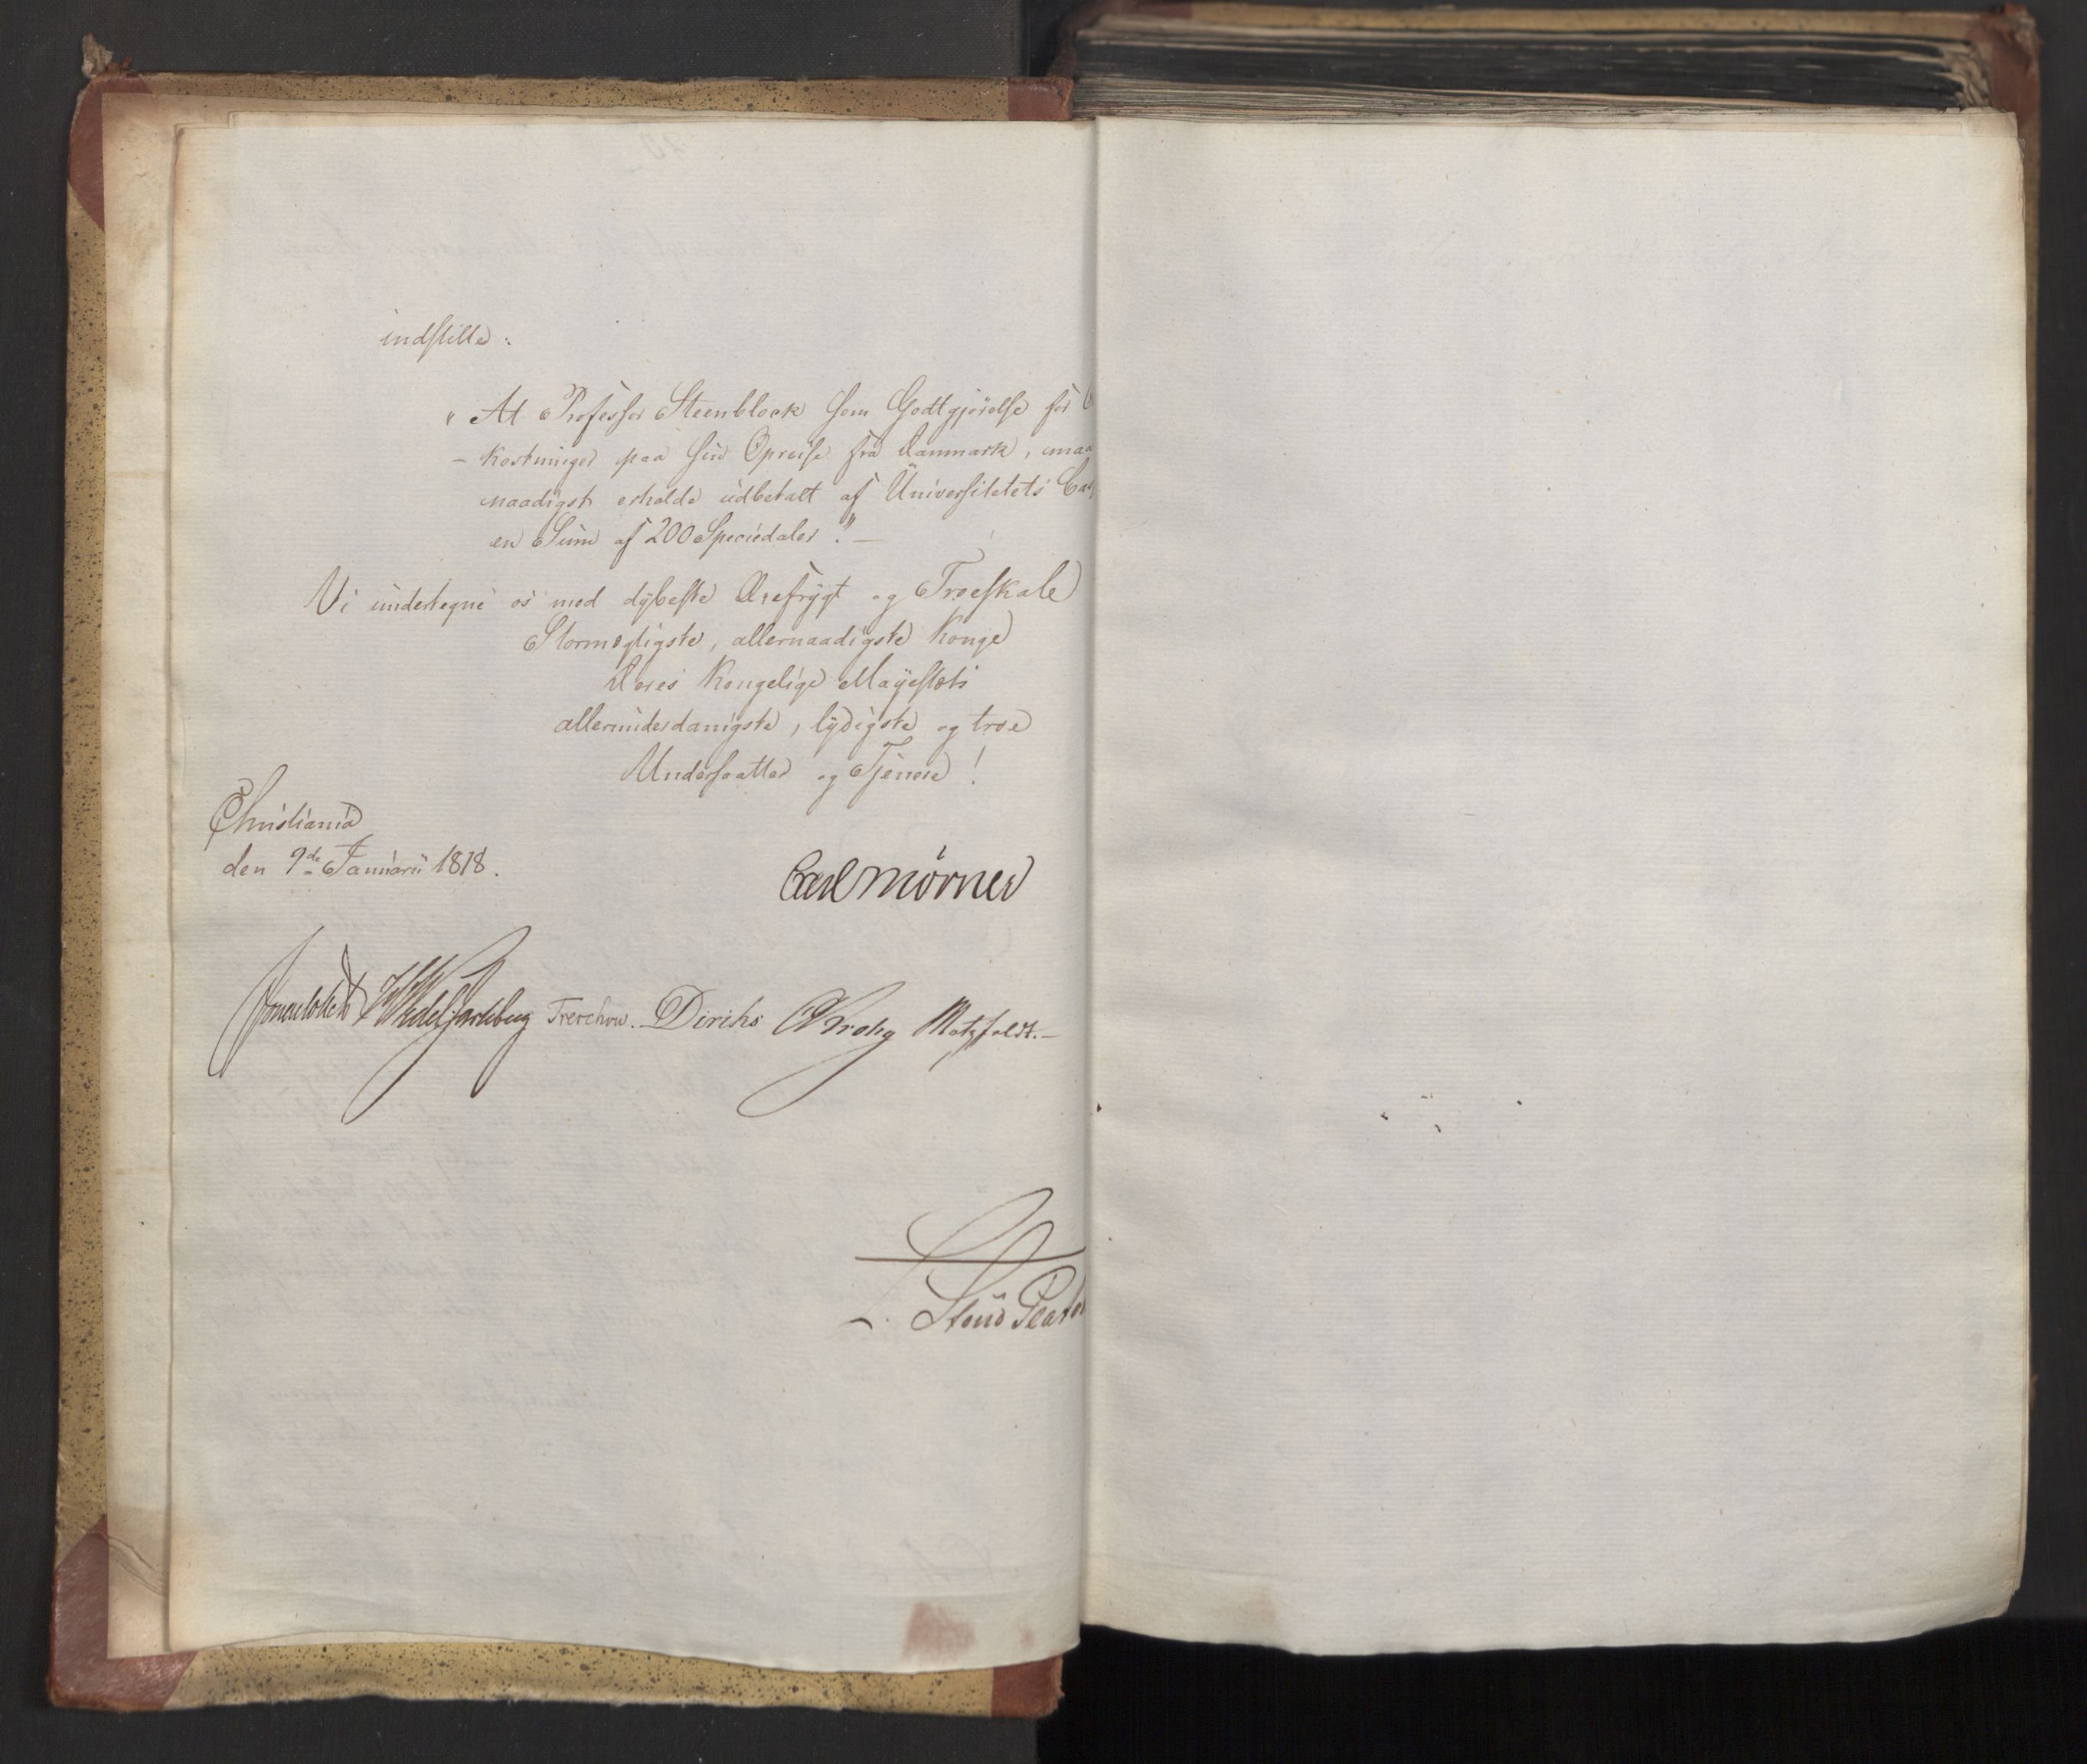 indstille:
"At Professor Steenblock som Godtgjörelse for
- kostninger paa sin Opreise fra Danmark, maa
naadigst erholde udbetalt af Universitetets
en Sum af 200 Speciedaler." —
Vi undertegne os med dybeste Ærefrygt og Troeskab
Stormægtigste, allernaadigste Konge
Deres Kongelige Mayestæts
allerunderdanigste, lydigste og troe
Undersaatter og Tjenere!
Christiania
den 9de Januarii 1818.
Carl Mörner
Sommerhielm Wedel Jarlsberg Treschow. Diriks Krohg Motzfeldt. —